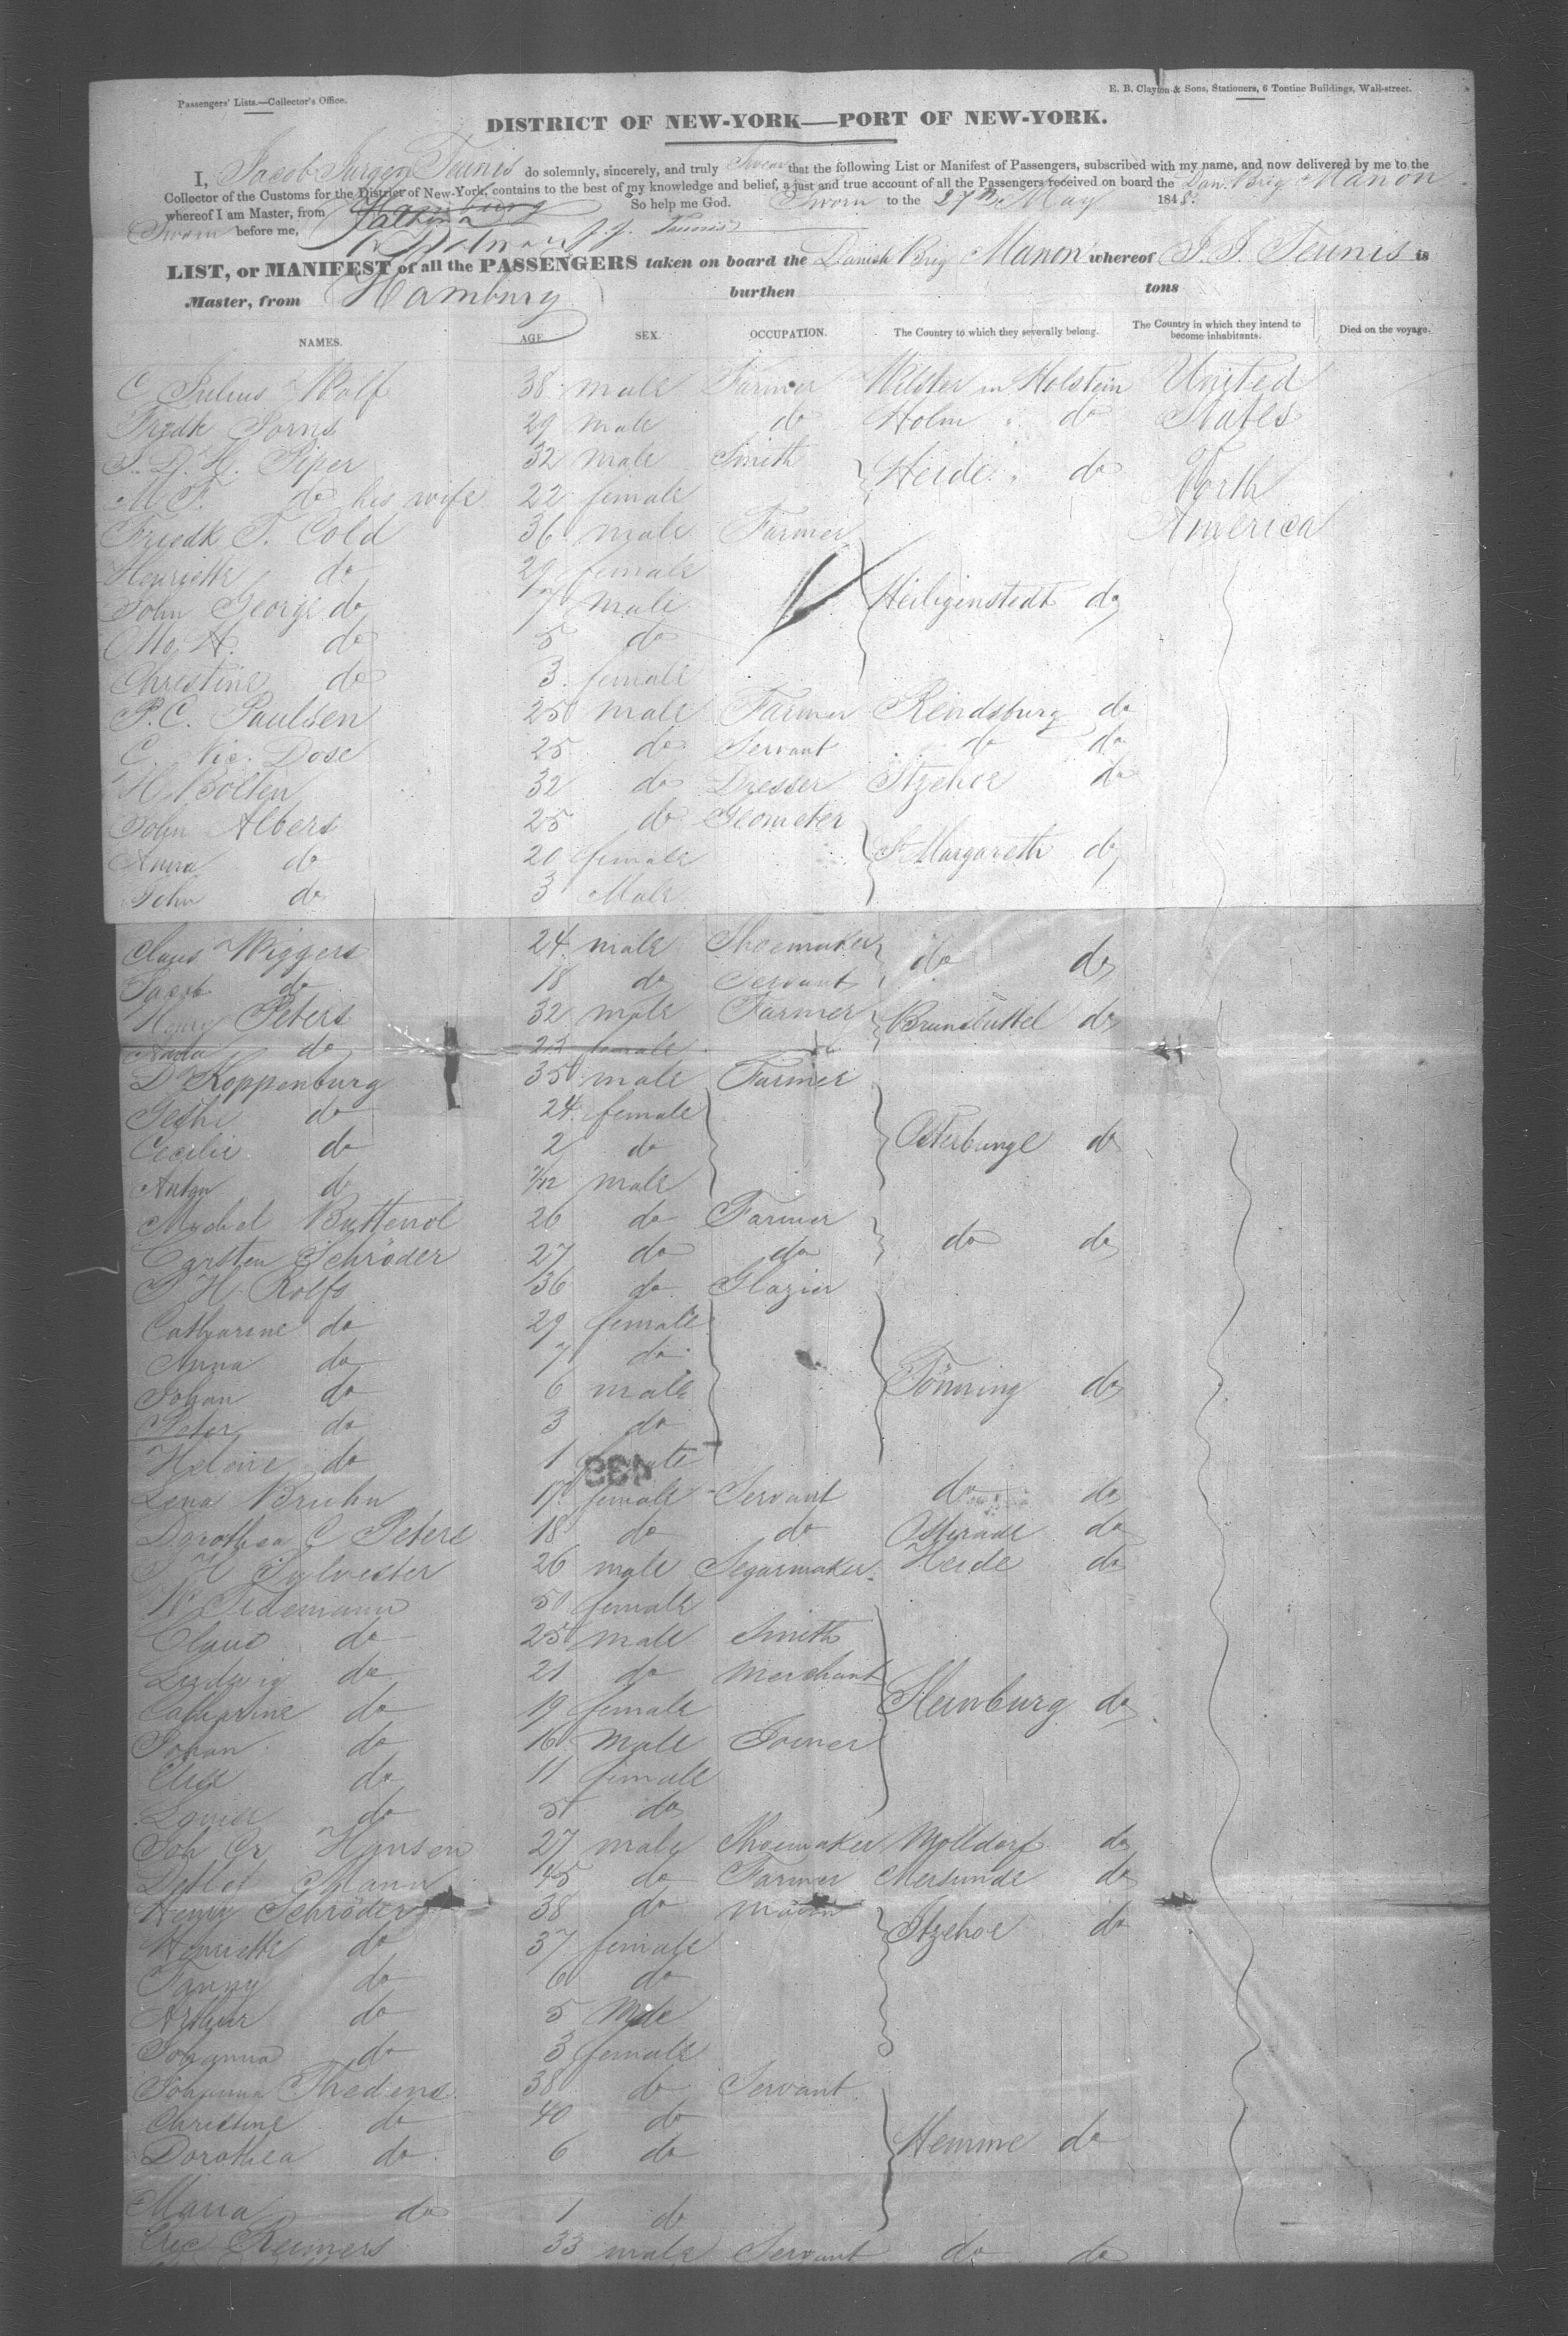 Passengers' Lists.—Collector's Office.
E. B. Clayton & Sons, Stationers, 6 Tontine Buildings, Wall-street.
DISTRICT OF NEW-YORK—PORT OF NEW-YORK.
I, Jacob Jurgen Teunis do solemnly, sincerely, and truly Swear that the following List or Manifest of Passengers, subscribed with my name, and now delivered by me to the
Collector of the Customs for the District of New-York, contains to the best of my knowledge and belief, a just and true account of all the Passengers received on board the Dan. Brig Manon
whereof I am Master, from Hamburg So help me God.
Sworn to the 27th May 1848.
Sworn before me, J. J. Teunis
LIST, or MANIFEST of all the PASSENGERS taken on board the Danish Brig Manon whereof J. J. Teunis is
Master, from Hamburg burthen tons
NAMES. AGE SEX. OCCUPATION. The Country to which they severally belong. The Country in which they intend to become inhabitants. Died on the voyage.
C Julius Wolf 38 male Farmer Wilster in Holstein United
Fredk Sorns 29 male do Holm do States
J. D. H. Piper 32 male Smith Heide do North
M. F. do his wife 22 female
Friedk T. Cold 36 male Farmer America
Henriette do 29 female
John George do 7 male Heiligenstedt do
Otto A. do 5 do
Christine do 3 female
P. C. Paulsen 25 male Farmer Rendsburg do
C. Nic. Dose 25 do Servant do do
H. Bolten 32 do Dresser Itzehoe do
John Albers 25 do Geometer
Anna do 20 female St Margareth do
John do 3 Male
Claus Wiggers 24 male Shoemaker do do
Jacob do 18 do Servant
Henry Peters 32 male Farmer Brunsbüttel do
Anna do 22 female
D Koppenburg 35 male Farmer
Geshe do 24 female
Cecilie do 2 do Osterbunge do
Anton do /12 male
Michel Buttenol 26 do Farmer do do
Carsten Schröder 27 do do
P H Rolfs 36 do Glazier
Catharine do 29 female
Anna do 7 do
Johan do 6 male Tönning do
Peter do 3 do
Helene do 1 female
Lena Bruhn 17 female Servant do do
Dorothea C Peters 18 do do Osterade do
J H Sylvester 26 male Segarmaker Heide do
W Tidemann 50 female
Claus do 25 male Smith
Ludwig do 21 do Merchant
Catharine do 19 female Steinburg do
Johan do 16 Male Joiner
Elise do 11 female
Louise do 5 do
Joh Cr Hansen 27 male Shoemaker Molldorf do
Detlef Mann 45 do Farmer Mersunde do
Henry Schröder 38 do mason Itzehoe do
Henriette do 37 female
Fanny do 6 do
Arthur do 5 Male
Johanna do 3 female
Johanna Thedens 38 do Servant
Christine do 40 do
Dorothea do 6 do Hemme do
Maria do 1 do
Eric Reimers 33 male Servant do do